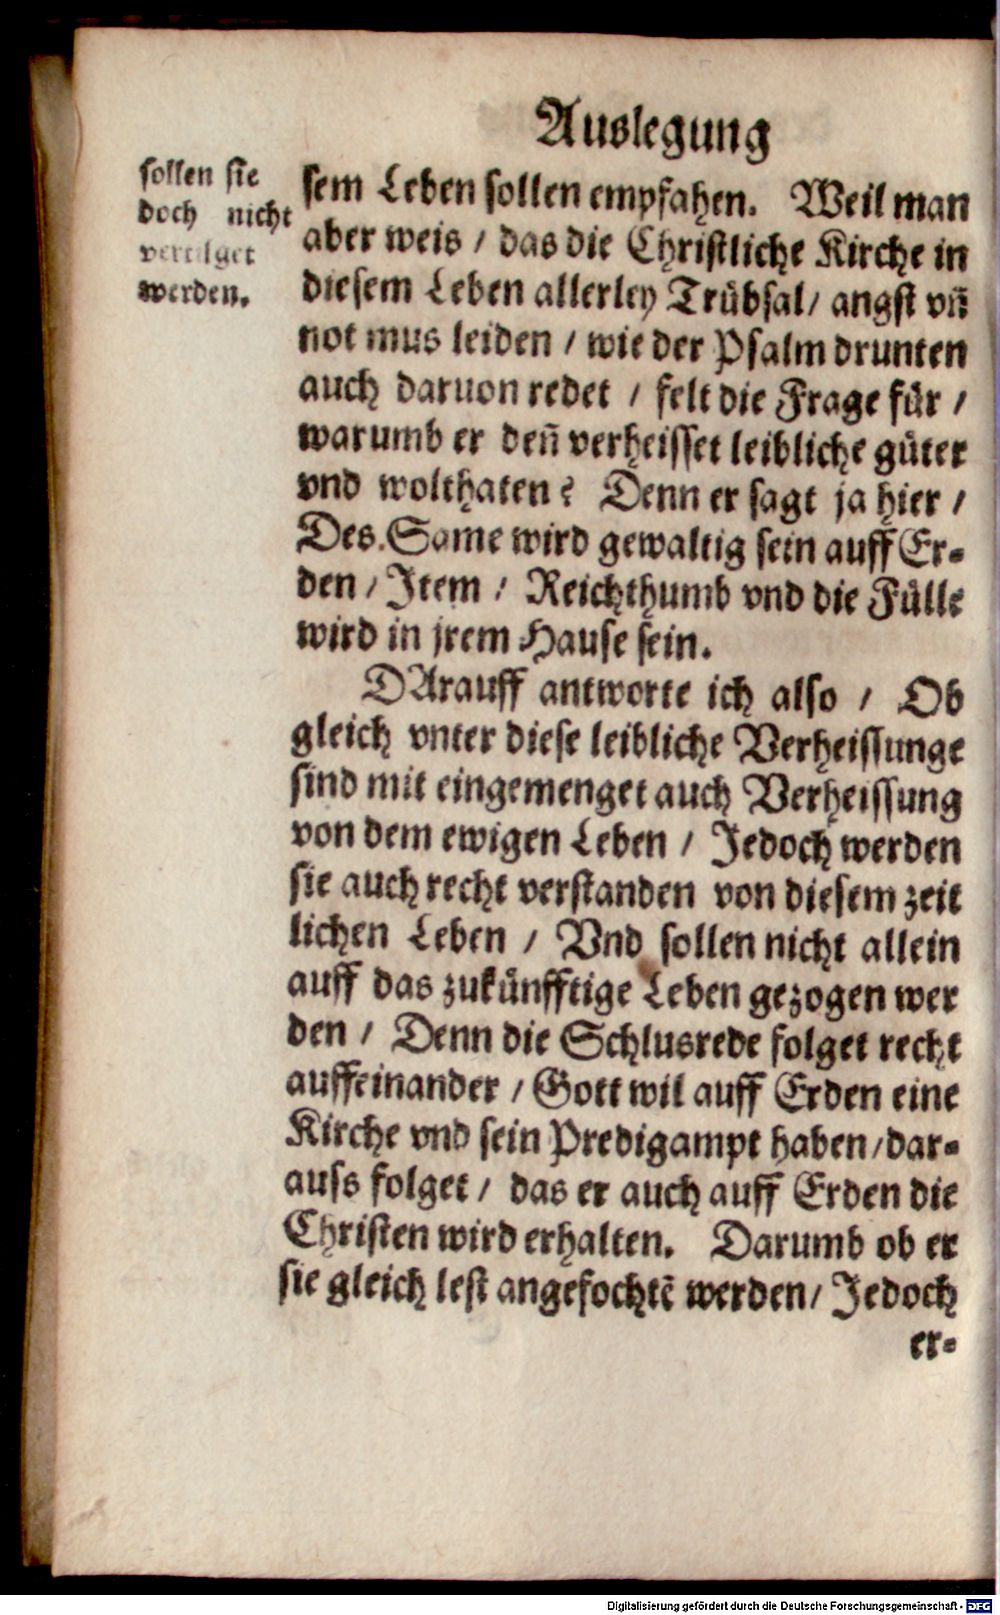 Auslegung
sollen sie
doch nicht
vertilget
werden.
sem Leben sollen empfahen. Weil man
aber weis / das die Christliche Kirche in
diesem Leben allerley Trübsal / angst vn̄
not mus leiden / wie der Psalm drunten
auch daruon redet / felt die Frage für /
warumb er den̄ verheisset leibliche güter
vnd wolthaten? Denn er sagt ja hier /
Des Same wird gewaltig sein auff Er-
den / Item / Reichthumb vnd die Fülle
wird in jrem Hause sein.
DArauff antworte ich also / Ob
gleich vnter diese leibliche Verheissunge
sind mit eingemenget auch Verheissung
von dem ewigen Leben / Jedoch werden
sie auch recht verstanden von diesem zeit
lichen Leben / Vnd sollen nicht allein
auff das zukünfftige Leben gezogen wer
den / Denn die Schlusrede folget recht
auffeinander / Gott wil auff Erden eine
Kirche vnd sein Predigampt haben / dar-
auss folget / das er auch auff Erden die
Christen wird erhalten. Darumb ob er
sie gleich lest angefochtē werden / Jedoch
er-
Digitalisierung gefördert durch die Deutsche Forschungsgemeinschaft - DFG